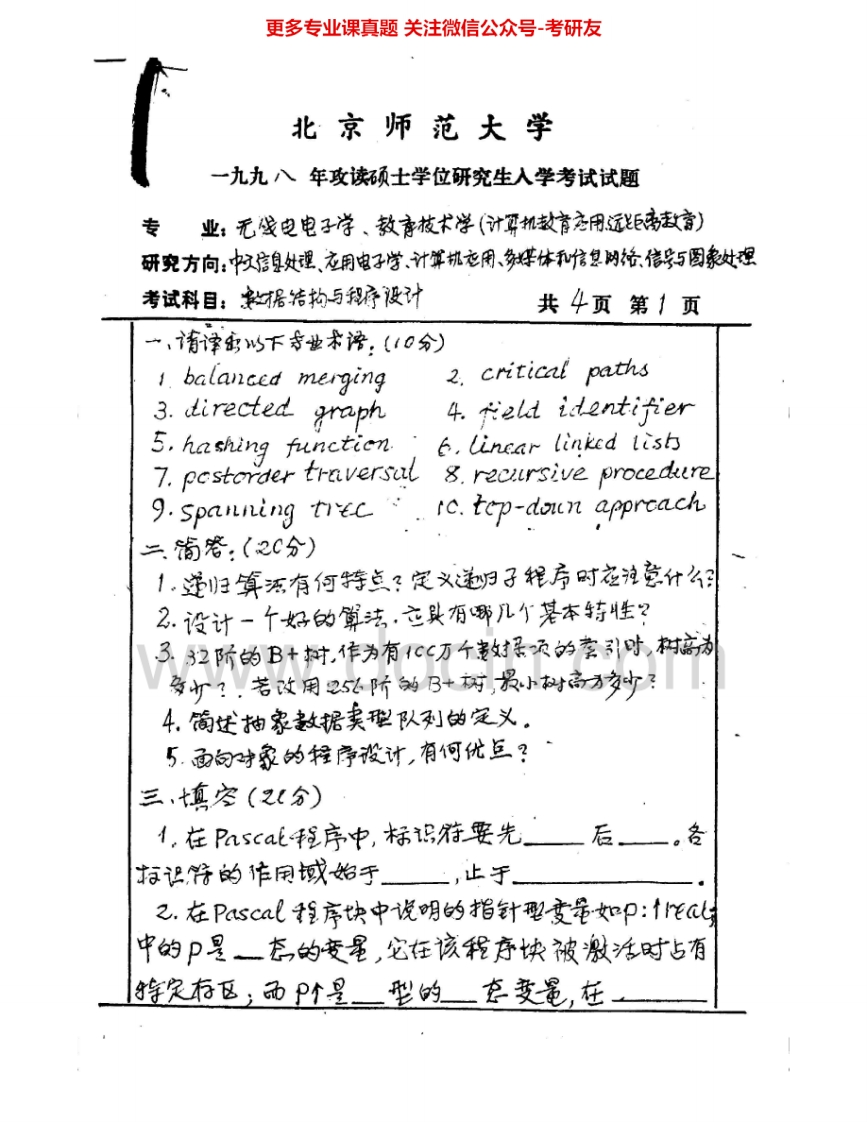 更多专业课真题 关注微信公众号-考研友
北京师范大学
一九九八 年攻读硕士学位研究生入学考试试题
专 业: 无线电电子学、教育技术学(计算机教育应用远距离教育)
研究方向: 中文信息处理、应用电子学、计算机应用、多媒体和信息网络、信号与图象处理
考试科目: 数据结构与程序设计
共 4 页 第 1 页
一、请译出以下专业术语: (10分)
1. balanced merging 2. critical paths
3. directed graph 4. field identifier
5. hashing function 6. linear linked lists
7. postorder traversal 8. recursive procedure
9. spanning tree 10. top-down approach
二、简答: (20分)
1. 递归算法有何特点? 定义递归子程序时应注意什么?
2. 设计一个好的算法, 应具有哪几个基本特性?
3. 32阶的B+树, 作为有100万个数据项的索引时, 树高为
多少? 若改用256阶的B+树, 最小树高为多少?
4. 简述抽象数据类型队列的定义.
5. 面向对象的程序设计, 有何优点?
三、填空 (20分)
1. 在Pascal程序中, 标识符要先____后____。各
标识符的作用域始于____, 止于________.
2. 在Pascal程序块中说明的指针型变量如p:↑real;
中的p是__态的变量, 它在该程序块被激活时占有
特定存区; 而p↑是__型的__态变量, 在______
www.docin.com